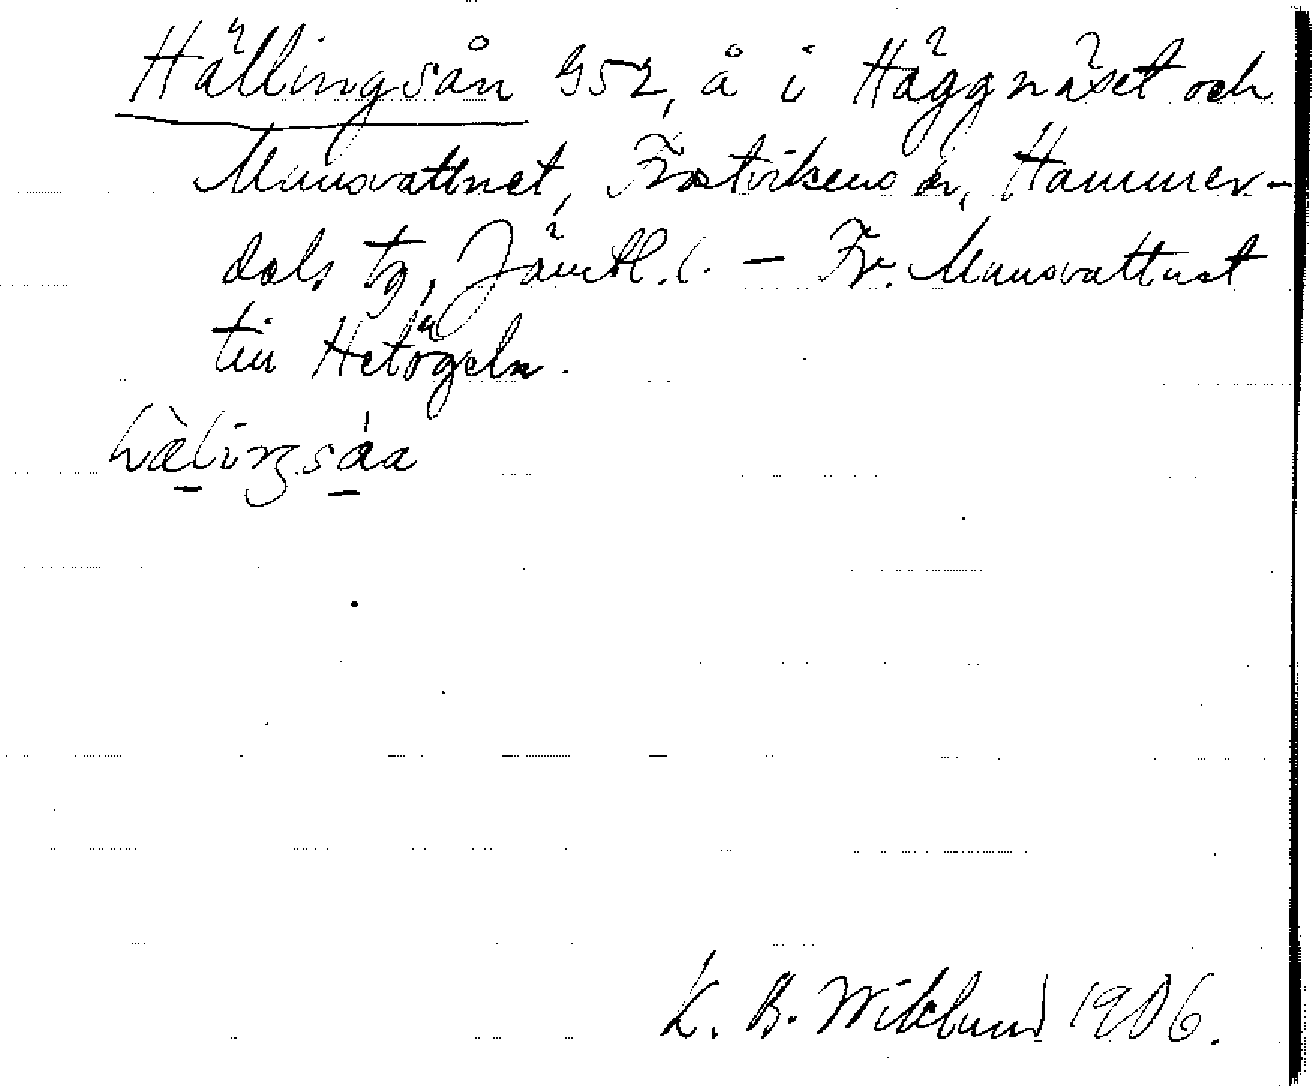 Hällingsån G52, å i Häggnäset och
Munsvattnet, Frostvikens sn, Hammer-
dals tg, Jämtl. l. — Fr. Munsvattnet
till Hetögeln.
hæ̀liŋsåa
K. B. Wiklund 1906.